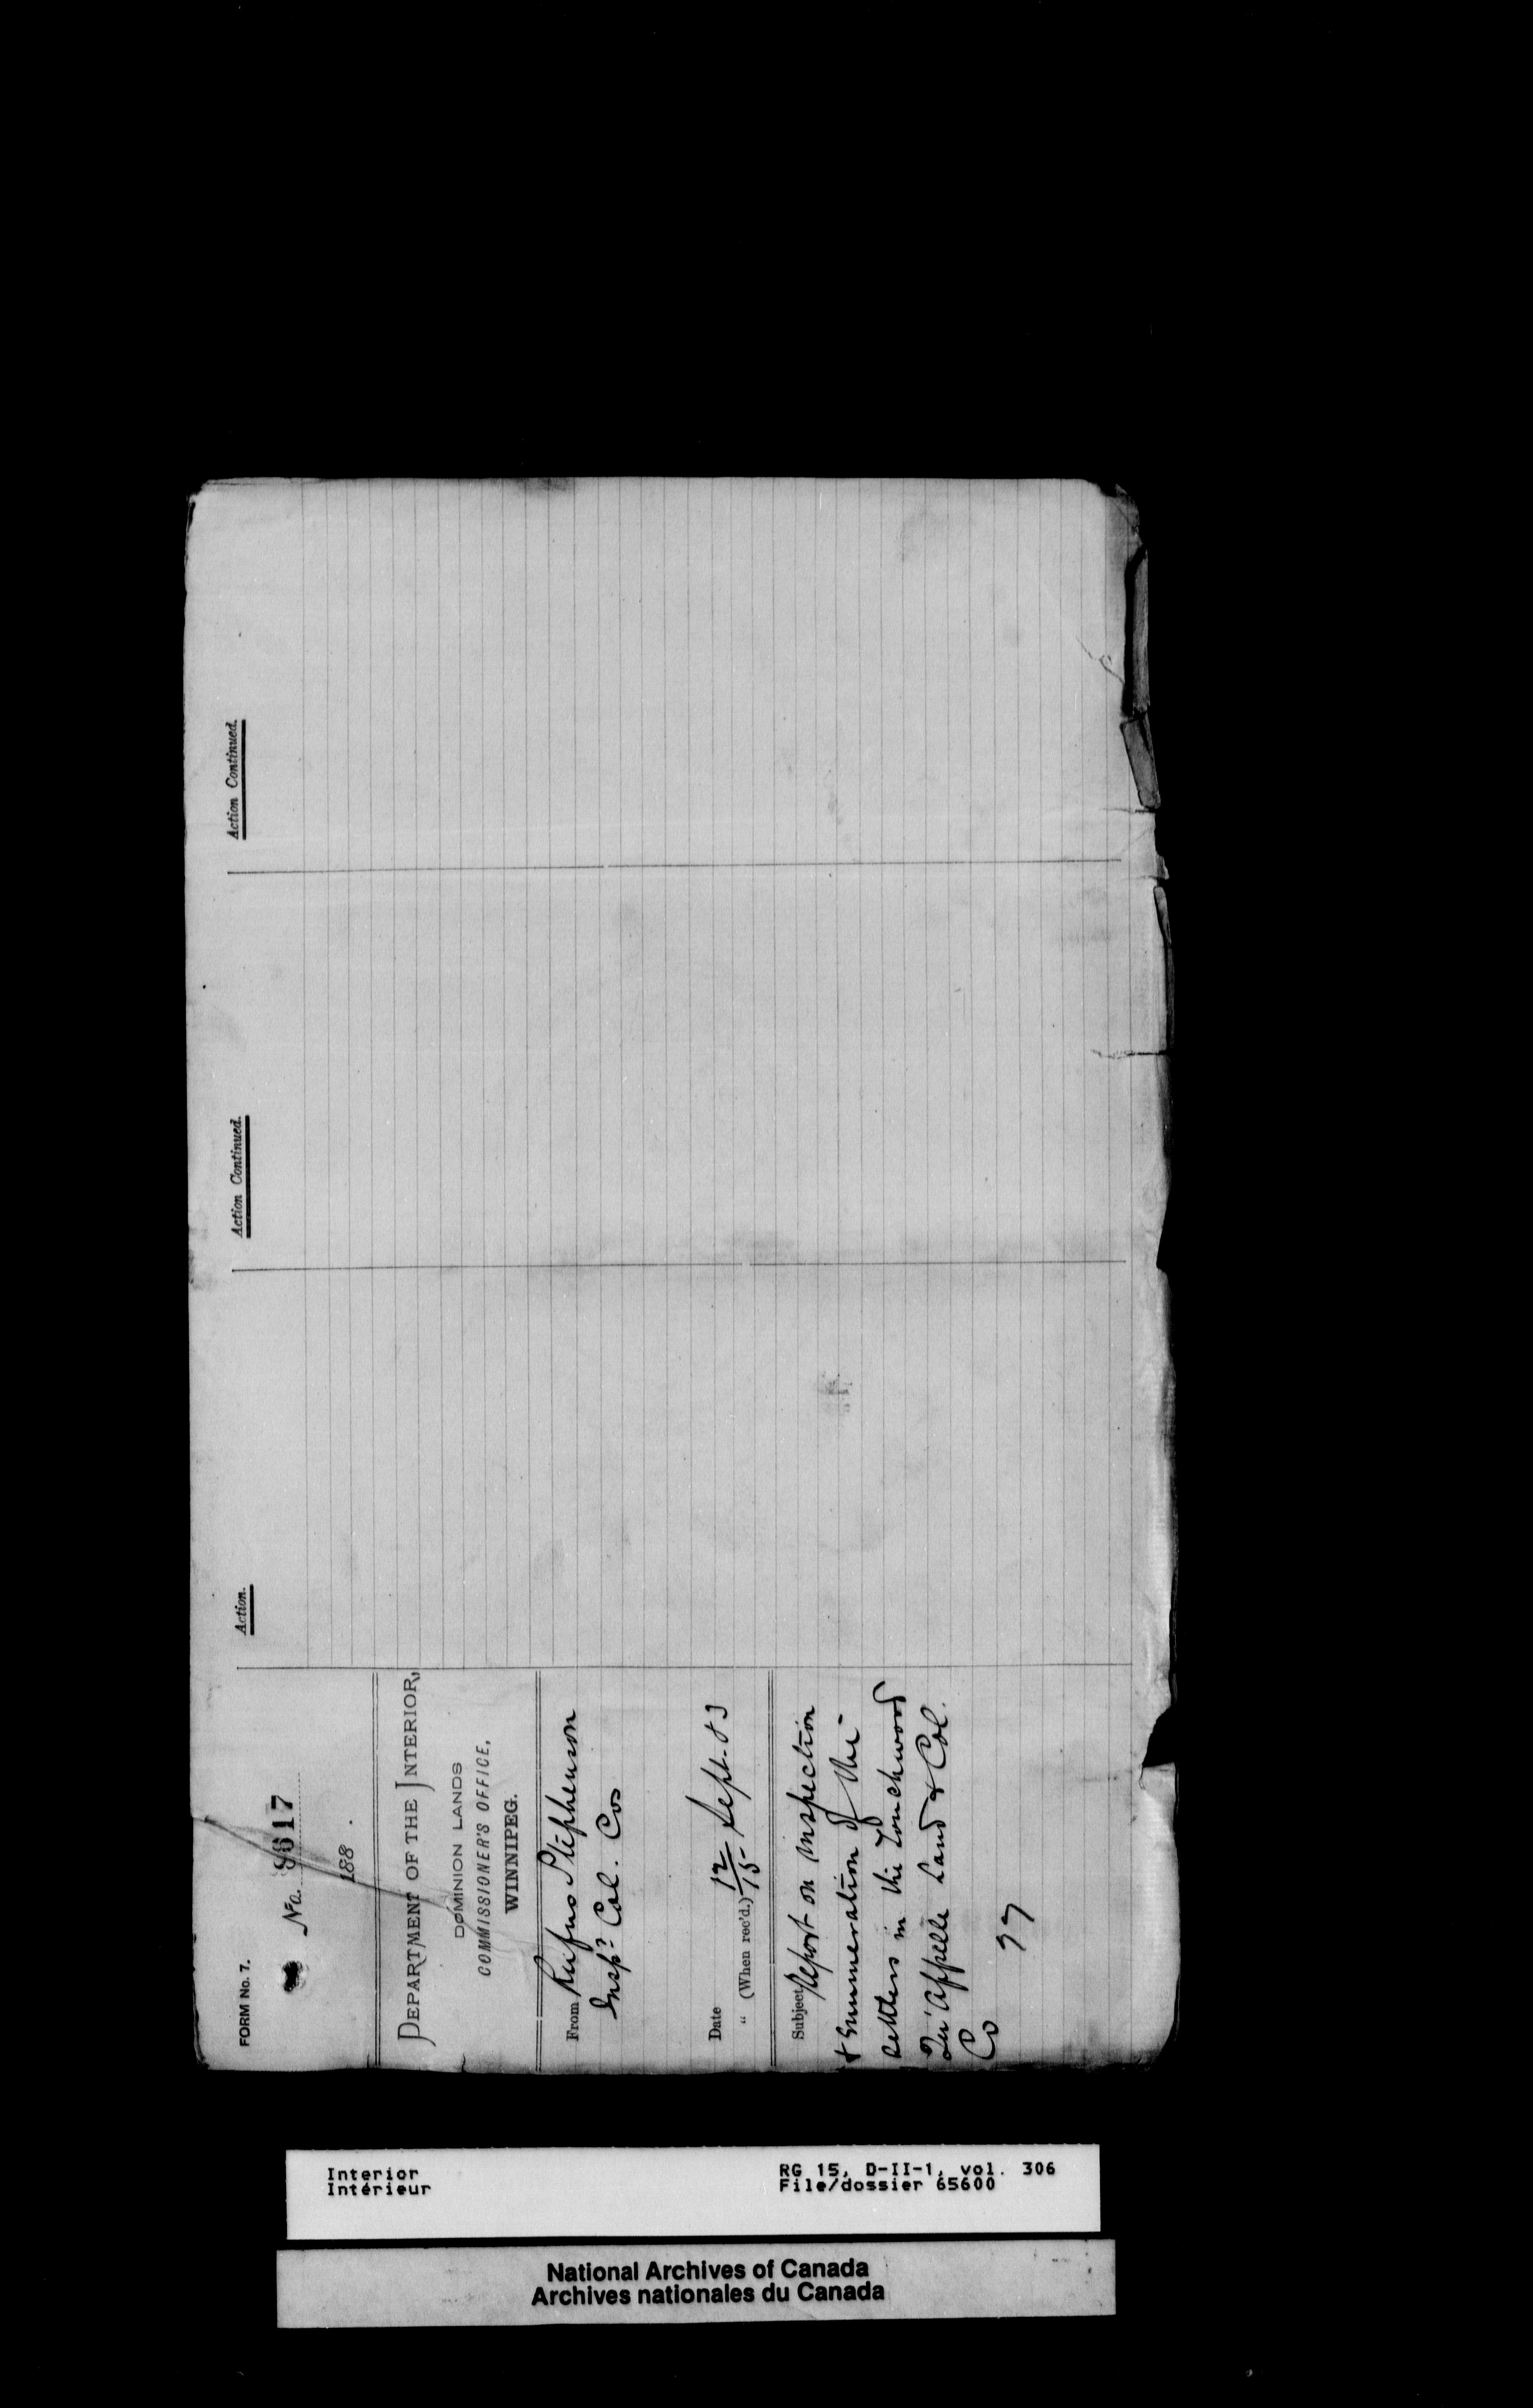 FORM No. 7.
No. 8617
188 .
DEPARTMENT OF THE INTERIOR,
DOMINION LANDS
COMMISSIONER'S OFFICE,
WINNIPEG.
From Rufus Stephenson
Inspr. Col. Cos
Date 12 Sept. 83
" (When rec'd.) 15
Subject Report on inspection
& Enumeration of the
settlers in the Touchwood
Qu'Appelle Land & Col.
Co
Action.
Action Continued.
Action Continued.
Interior
Intérieur
RG 15, D-II-1, vol. 306
File/dossier 65600
National Archives of Canada
Archives nationales du Canada